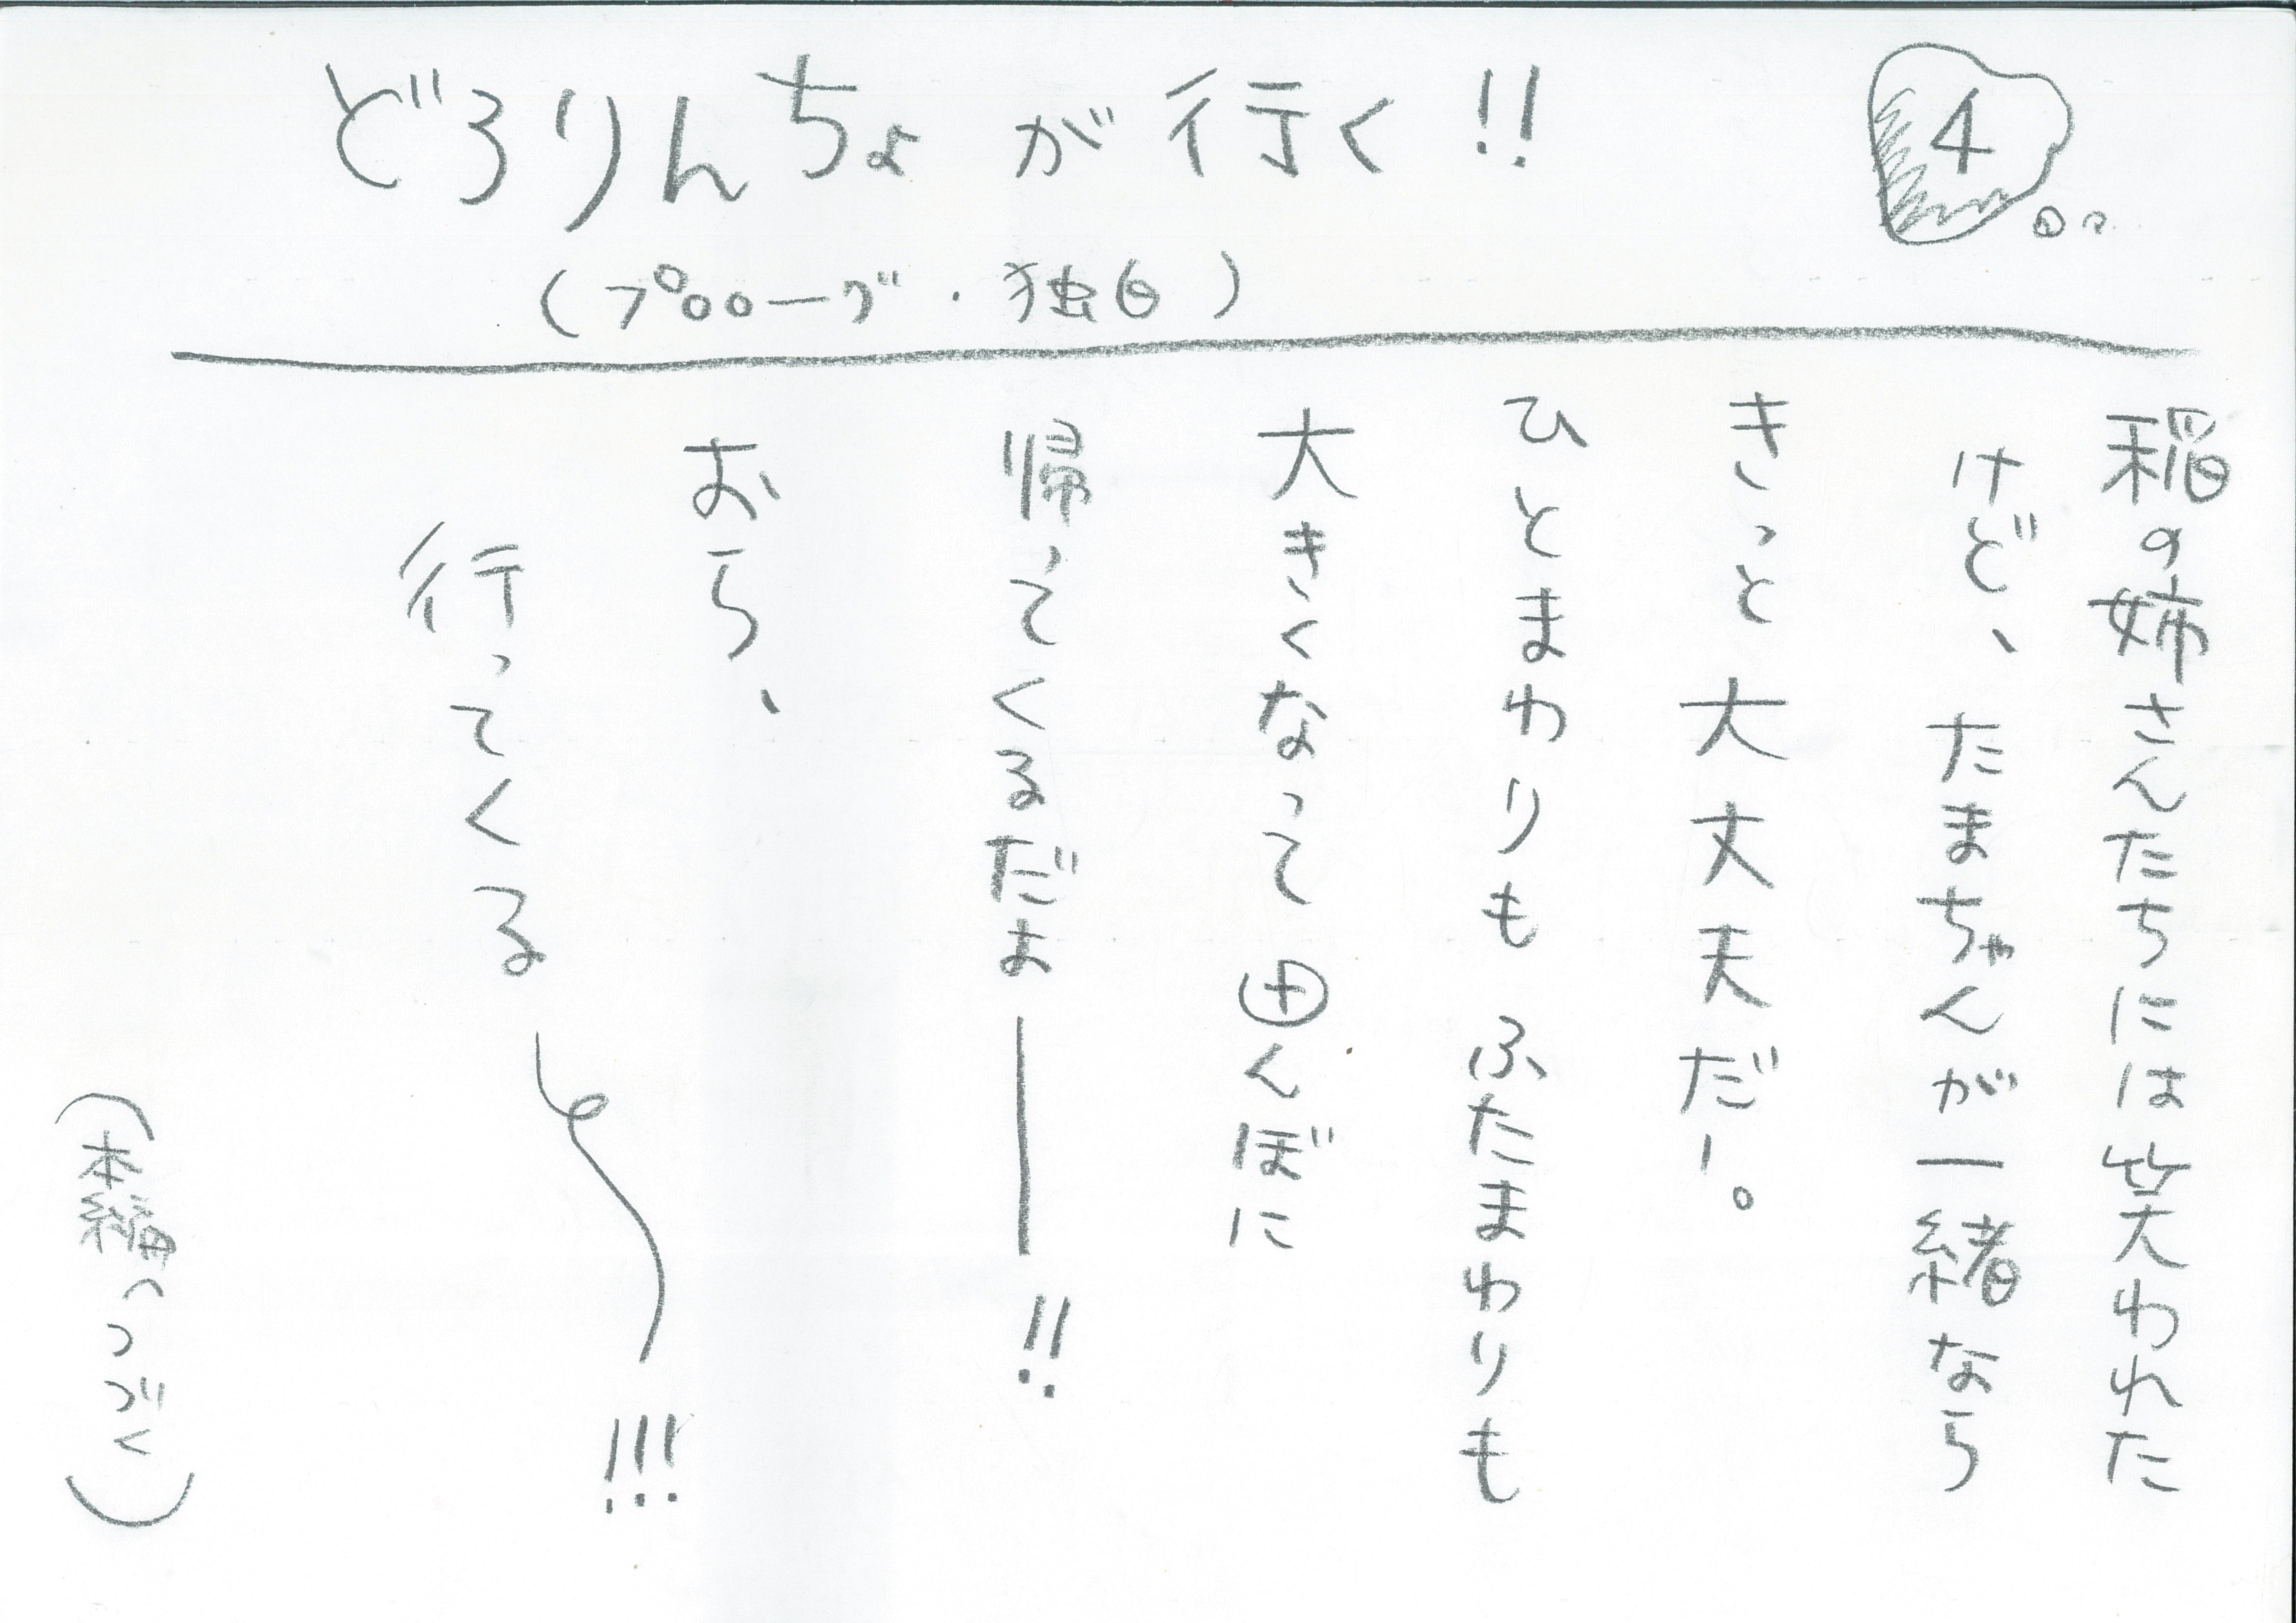 どろりんちょが行く!!
4
(プロローグ・独白)
稲の姉さんたちには笑われた
けど、たまちゃんが一緒なら
きっと大丈夫だー。
ひとまわりもふたまわりも
大きくなって田んぼに
帰ってくるだよー!!
おら、
行ってくる〜!!!
(本編へつづく)